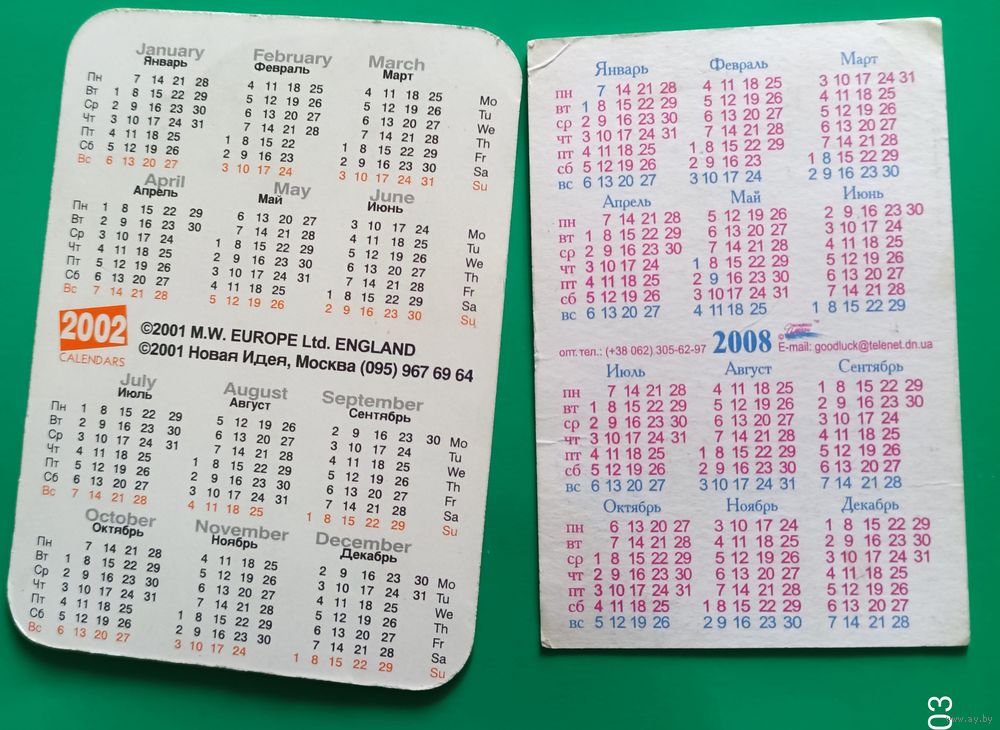 January February March
Январь Февраль Март
Пн 7 14 21 28 4 11 18 25 4 11 18 25 Mo
Вт 1 8 15 22 29 5 12 19 26 5 12 19 26 Tu
Ср 2 9 16 23 30 6 13 20 27 6 13 20 27 We
Чт 3 10 17 24 31 7 14 21 28 7 14 21 28 Th
Пт 4 11 18 25 1 8 15 22 1 8 15 22 29 Fr
Сб 5 12 19 26 2 9 16 23 2 9 16 23 30 Sa
Вс 6 13 20 27 3 10 17 24 3 10 17 24 31 Su
April May June
Апрель Май Июнь
Пн 1 8 15 22 29 6 13 20 27 3 10 17 24 Mo
Вт 2 9 16 23 30 7 14 21 28 4 11 18 25 Tu
Ср 3 10 17 24 1 8 15 22 29 5 12 19 26 We
Чт 4 11 18 25 2 9 16 23 30 6 13 20 27 Th
Пт 5 12 19 26 3 10 17 24 31 7 14 21 28 Fr
Сб 6 13 20 27 4 11 18 25 1 8 15 22 29 Sa
Вс 7 14 21 28 5 12 19 26 2 9 16 23 30 Su
2002
CALENDARS
©2001 M.W. EUROPE Ltd. ENGLAND
©2001 Новая Идея, Москва (095) 967 69 64
July August September
Июль Август Сентябрь
Пн 1 8 15 22 29 5 12 19 26 2 9 16 23 30 Mo
Вт 2 9 16 23 30 6 13 20 27 3 10 17 24 Tu
Ср 3 10 17 24 31 7 14 21 28 4 11 18 25 We
Чт 4 11 18 25 1 8 15 22 29 5 12 19 26 Th
Пт 5 12 19 26 2 9 16 23 30 6 13 20 27 Fr
Сб 6 13 20 27 3 10 17 24 31 7 14 21 28 Sa
Вс 7 14 21 28 4 11 18 25 1 8 15 22 29 Su
October November December
Октябрь Ноябрь Декабрь
Пн 7 14 21 28 4 11 18 25 2 9 16 23 30 Mo
Вт 1 8 15 22 29 5 12 19 26 3 10 17 24 31 Tu
Ср 2 9 16 23 30 6 13 20 27 4 11 18 25 We
Чт 3 10 17 24 31 7 14 21 28 5 12 19 26 Th
Пт 4 11 18 25 1 8 15 22 29 6 13 20 27 Fr
Сб 5 12 19 26 2 9 16 23 30 7 14 21 28 Sa
Вс 6 13 20 27 3 10 17 24 1 8 15 22 29 Su
Январь Февраль Март
пн 7 14 21 28 4 11 18 25 3 10 17 24 31
вт 1 8 15 22 29 5 12 19 26 4 11 18 25
ср 2 9 16 23 30 6 13 20 27 5 12 19 26
чт 3 10 17 24 31 7 14 21 28 6 13 20 27
пт 4 11 18 25 1 8 15 22 29 7 14 21 28
сб 5 12 19 26 2 9 16 23 1 8 15 22 29
вс 6 13 20 27 3 10 17 24 2 9 16 23 30
Апрель Май Июнь
пн 7 14 21 28 5 12 19 26 2 9 16 23 30
вт 1 8 15 22 29 6 13 20 27 3 10 17 24
ср 2 9 16 23 30 7 14 21 28 4 11 18 25
чт 3 10 17 24 1 8 15 22 29 5 12 19 26
пт 4 11 18 25 2 9 16 23 30 6 13 20 27
сб 5 12 19 26 3 10 17 24 31 7 14 21 28
вс 6 13 20 27 4 11 18 25 1 8 15 22 29
опт. тел.: (+38 062) 305-62-97 2008 © E-mail: goodluck@telenet.dn.ua
Июль Август Сентябрь
пн 7 14 21 28 4 11 18 25 1 8 15 22 29
вт 1 8 15 22 29 5 12 19 26 2 9 16 23 30
ср 2 9 16 23 30 6 13 20 27 3 10 17 24
чт 3 10 17 24 31 7 14 21 28 4 11 18 25
пт 4 11 18 25 1 8 15 22 29 5 12 19 26
сб 5 12 19 26 2 9 16 23 30 6 13 20 27
вс 6 13 20 27 3 10 17 24 31 7 14 21 28
Октябрь Ноябрь Декабрь
пн 6 13 20 27 3 10 17 24 1 8 15 22 29
вт 7 14 21 28 4 11 18 25 2 9 16 23 30
ср 1 8 15 22 29 5 12 19 26 3 10 17 24 31
чт 2 9 16 23 30 6 13 20 27 4 11 18 25
пт 3 10 17 24 31 7 14 21 28 5 12 19 26
сб 4 11 18 25 1 8 15 22 29 6 13 20 27
вс 5 12 19 26 2 9 16 23 30 7 14 21 28
03
www.ay.by